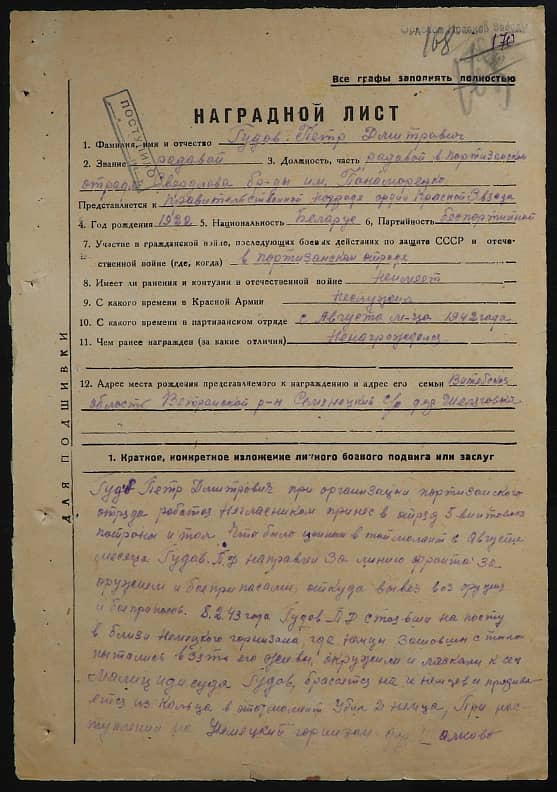 168
Все графы заполнять полностью
ПОСТУПИЛО
НАГРАДНОЙ ЛИСТ
1. Фамилия, имя и отчество Гудов Петр Дмитрович
2. Звание радавой 3. Должность, часть радавой в партизанском
отряде Свердлова бр-ды им. Панаморенко
Представляется к Правительственной награде орден Красной Звезда
4. Год рождения 1922 5. Национальность Беларус 6. Партийность беспортийной
7. Участие в гражданской войне, последующих боевых действиях по защите СССР и отече-
ственной войне (где, когда) в партизанском отряде
8. Имеет ли ранения и контузии в отечественной войне Неимеет
9. С какого времени в Красной Армии Неслужил
10. С какого времени в партизанском отряде с Августа м-ца 1942 года
11. Чем ранее награжден (за какие отличия) Ненагрожден
12. Адрес места рождения представляемого к награждению и адрес его семьи Витебская
область Ветринский р-н с/с дер
ДЛЯ ПОДШИВКИ
1. Краткое, конкретное изложение личного боевого подвига или заслуг
Гудов Петр Дмитрович при организации партизанского
отряда работал принес в отряд 5 винтовок
патроны и тол. Что было ценным в тот момент в Августе
месеце Гудов П.Д направлен За линию фронта за
оружием и боеприпасами, откуда вывез воз оружия
и боеприпасов. 8.2.43 года Гудов П.Д стоявши на посту
в близи Немецкого горнизона, где немцы с тыла
пытались взять его живым, окружили и
иди сюда Гудов, бросается на немцев и
из кольца в этот момент Убил 2 немца, При
на Немецкий горнизон